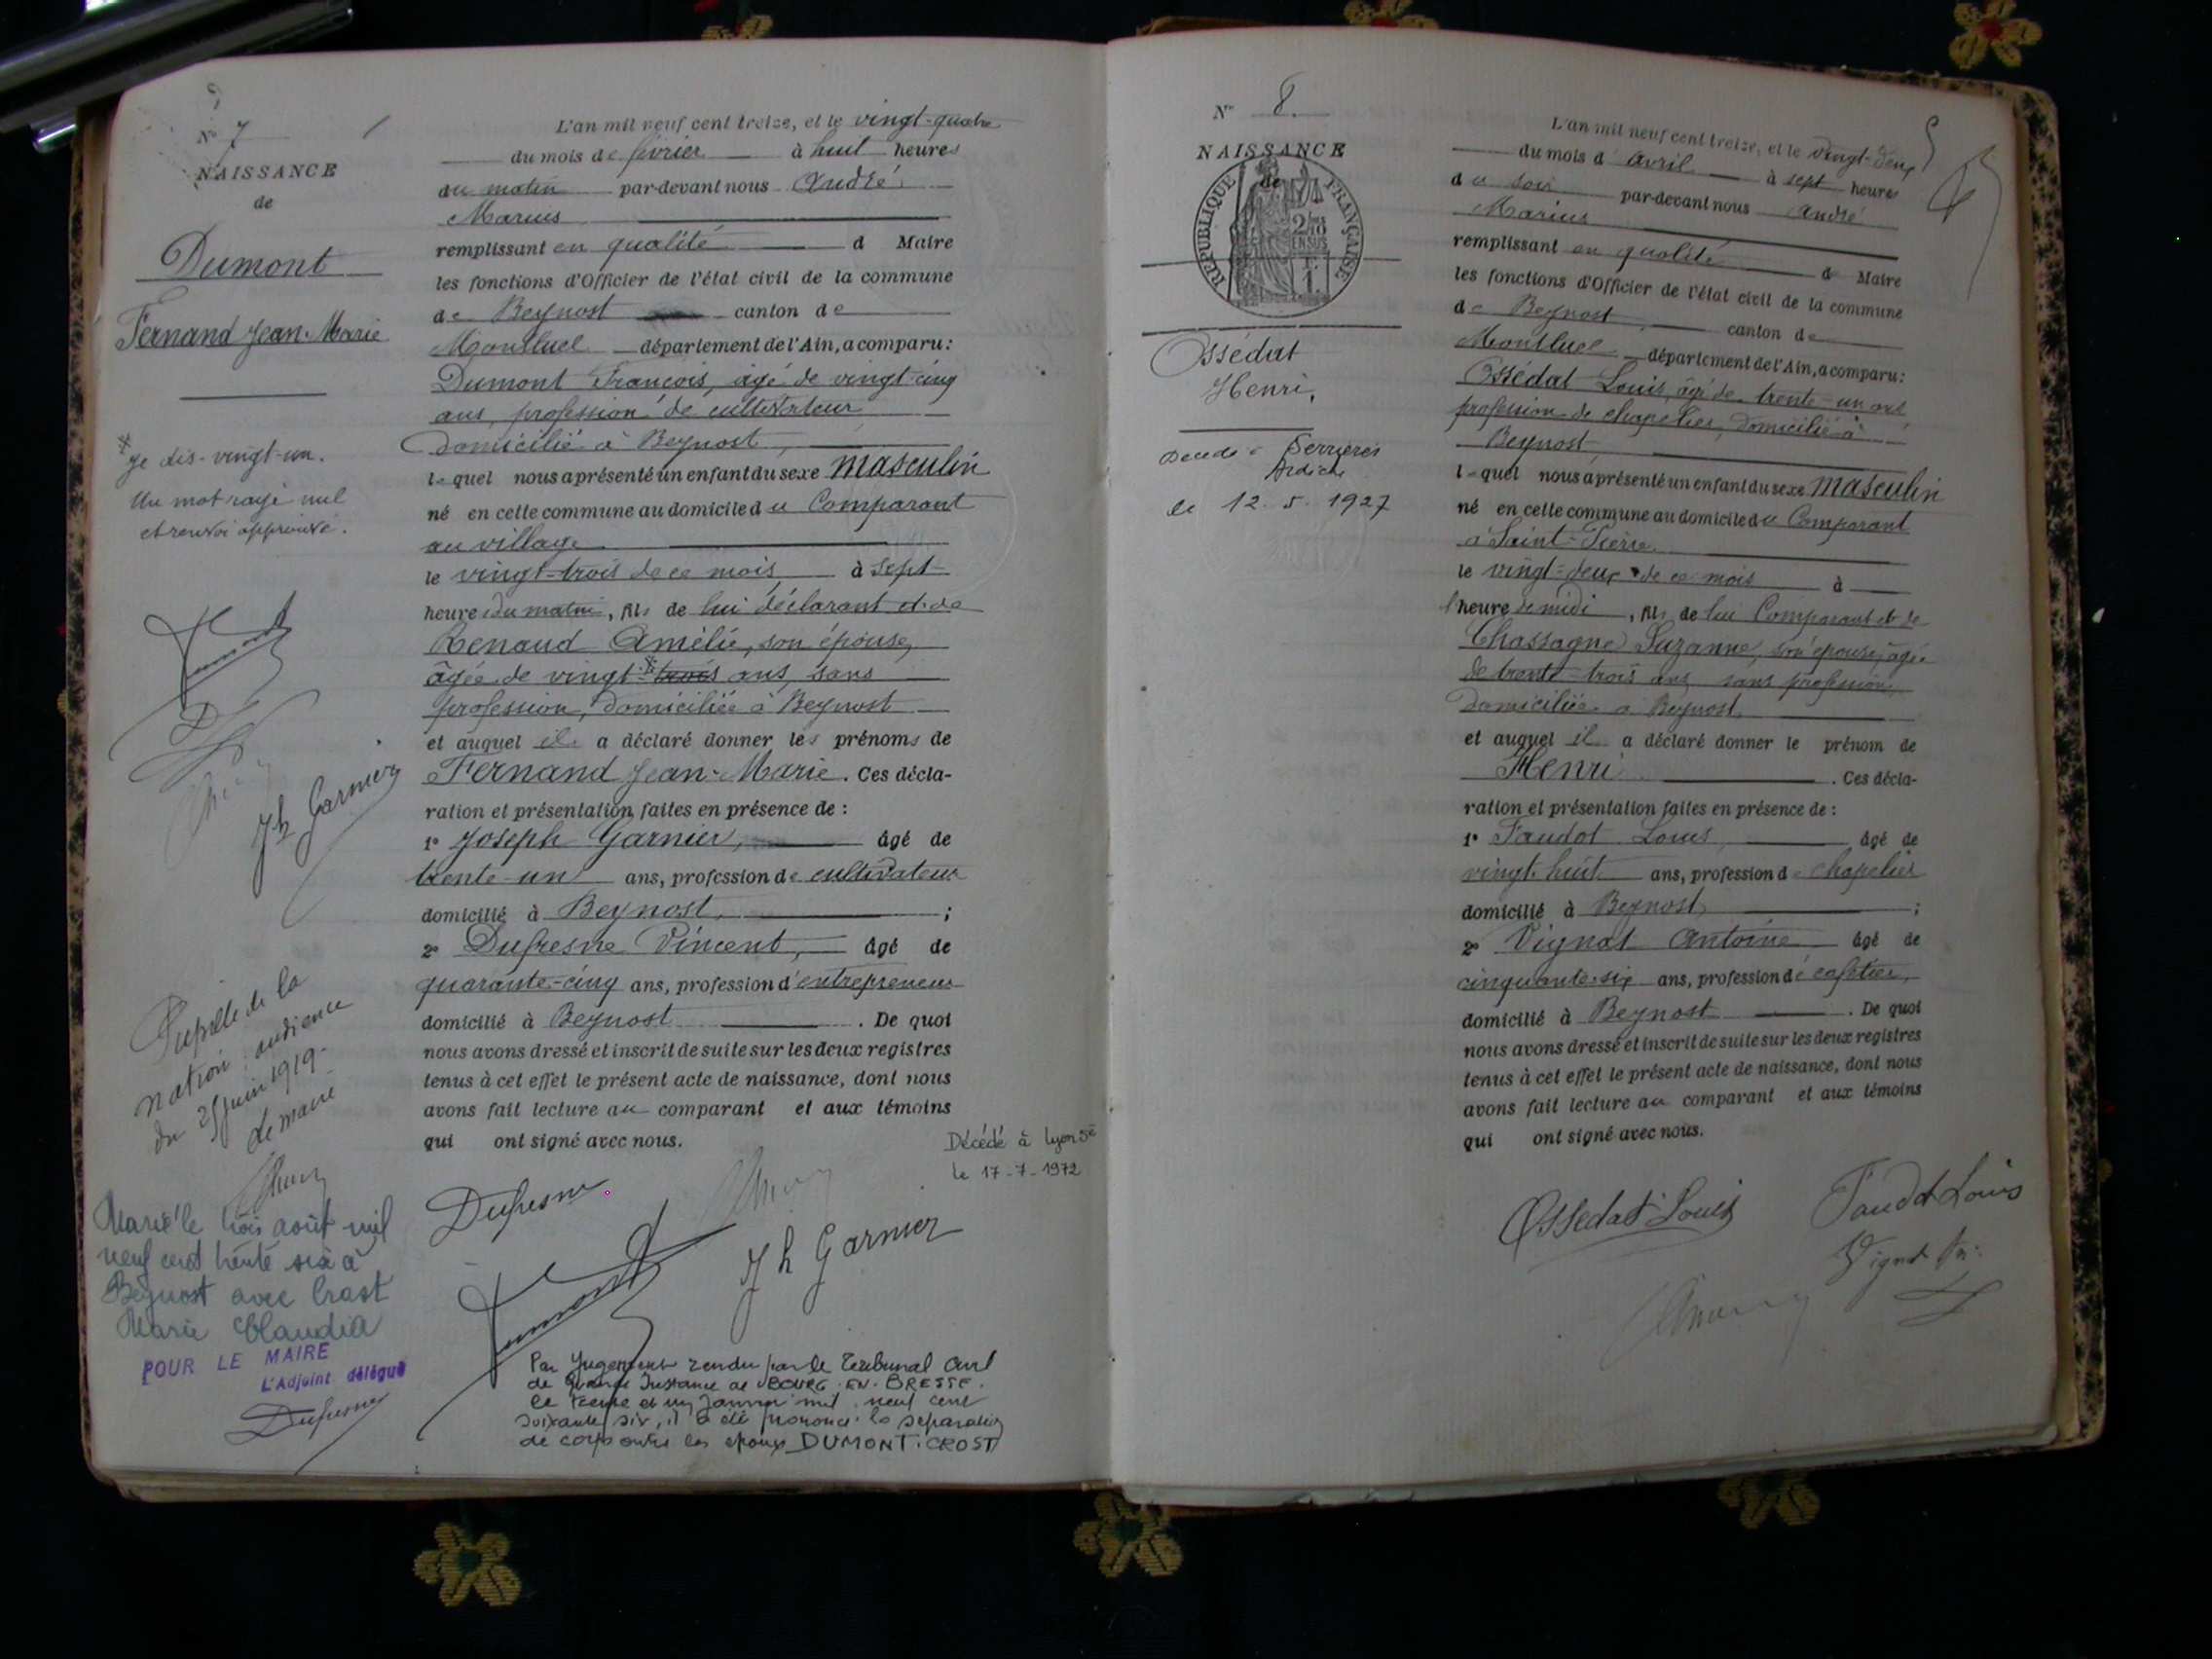 N° 7
NAISSANCE
de
Dumont
Fernand Jean-Marie
* Je dis-vingt-un.
Un mot rayé nul
et renvoi approuvé.
Jh Garnier
Pupille de la
nation, audience
du 25 juin 1919-
Le maire
Marié le trois août mil
neuf cent trente six à
Beynost avec Crost
Marie Claudia
POUR LE MAIRE
L'Adjoint délégué
Dufresne
L'an mil neuf cent treize, et le vingt-quatre
du mois de février à huit heures
du matin par-devant nous André
Marius
remplissant en qualité d Maire
les fonctions d'Officier de l'état civil de la commune
de Beynost canton de
Montluel département de l'Ain, a comparu:
Dumont François, âgé de vingt-cinq
ans, profession de cultivateur
domicilié à Beynost,
lequel nous a présenté un enfant du sexe masculin
né en cette commune au domicile du Comparant
au village
le vingt-trois de ce mois à sept
heures du matin, fils de lui déclarant et de
Renaud Amélie, son épouse,
âgée de vingt-* trois ans, sans
profession, domiciliée à Beynost
et auquel il a déclaré donner les prénoms de
Fernand Jean-Marie. Ces décla-
ration et présentation faites en présence de :
1° Joseph Garnier, âgé de
trente-un ans, profession de cultivateur
domicilié à Beynost, ;
2° Dufresne Vincent, âgé de
quarante-cinq ans, profession d'entrepreneur
domicilié à Beynost . De quoi
nous avons dressé et inscrit de suite sur les deux registres
tenus à cet effet le présent acte de naissance, dont nous
avons fait lecture au comparant et aux témoins
qui ont signé avec nous.
Décédé à Lyon 5e
le 17-7-1972
Dufresne
Dumont
Jh Garnier
Par Jugement rendu par le Tribunal Civil
de Grande Instance de BOURG-EN-BRESSE.
le trente et un Janvier mil neuf cent
soixante six, il a été prononcé la séparation
de corps entre les époux DUMONT-CROST
N° 8.
NAISSANCE
de
REPUBLIQUE FRANÇAISE
2/10
EN SUS
Ossédat
Henri,
Décédé à Serrières
Ardèche
le 12.5.1927
L'an mil neuf cent treize, et le vingt-deux
du mois d'avril à sept heures
du soir par-devant nous André
Marius
remplissant en qualité de Maire
les fonctions d'Officier de l'état civil de la commune
de Beynost, canton de
Montluel département de l'Ain, a comparu:
Ossedat Louis, âgé de trente-un ans
profession de chapelier, domicilié à
Beynost,
lequel nous a présenté un enfant du sexe masculin
né en cette commune au domicile du Comparant
à Saint-Pierre
le vingt-deux de ce mois à
l'heure de midi, fils de lui Comparant et de
Chassagne Suzanne, son épouse, âgée
de trente-trois ans, sans profession,
domiciliée à Beynost,
et auquel il a déclaré donner le prénom de
Henri . Ces décla-
ration et présentation faites en présence de :
1° Faudot Louis, âgé de
vingt-huit ans, profession de chapelier
domicilié à Beynost, ;
2° Vignat Antoine âgé de
cinquante-six ans, profession de cafetier,
domicilié à Beynost . De quoi
nous avons dressé et inscrit de suite sur les deux registres
tenus à cet effet le présent acte de naissance, dont nous
avons fait lecture au comparant et aux témoins
qui ont signé avec nous.
Ossedat Louis
Faudot Louis
Vignat An: